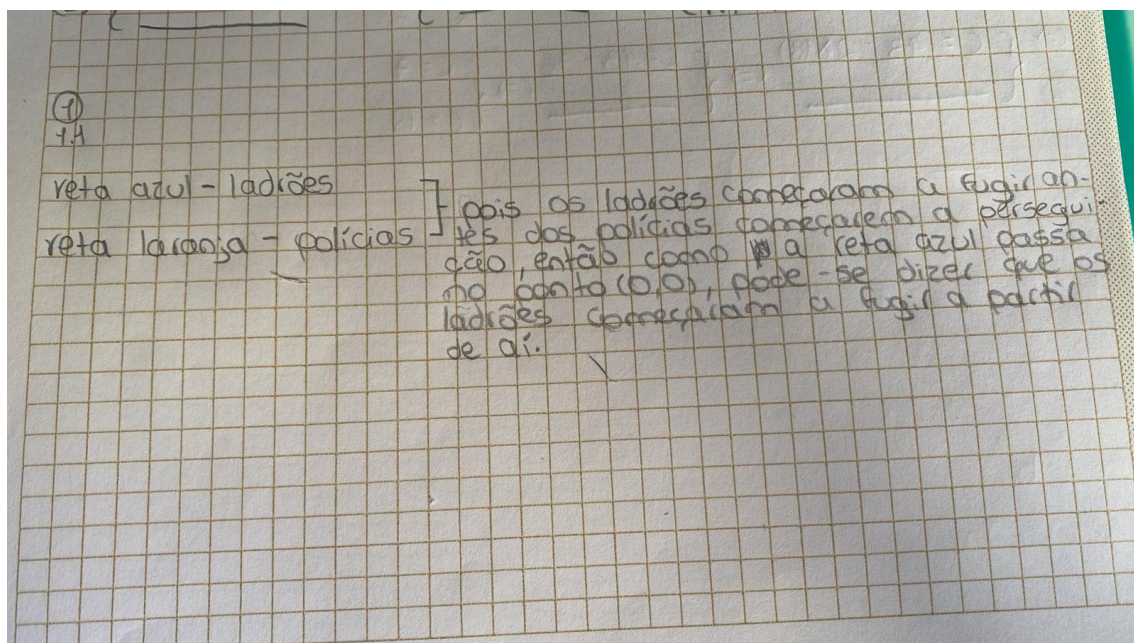 ①
1.1
reta azul - ladrões
reta laranja - polícias
pois os ladrões começaram a fugir an-
tes dos polícias começarem a persegui-
ção, então como a reta azul passa
no ponto (0,0), pode-se dizer que os
ladrões começaram a fugir a partir
de aí.